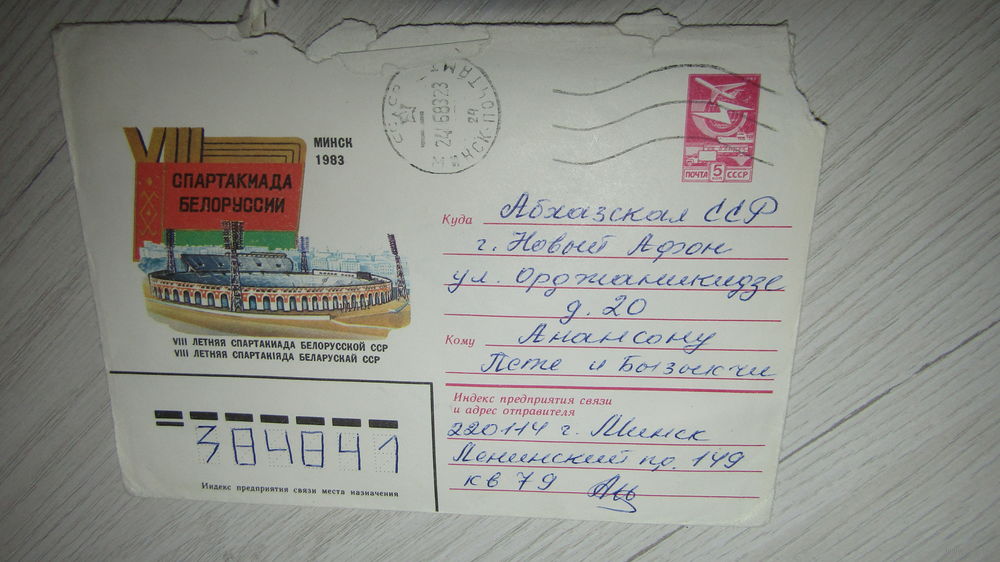 VIII
СПАРТАКИАДА
БЕЛОРУССИИ
МИНСК
1983
VIII ЛЕТНЯЯ СПАРТАКИАДА БЕЛОРУССКОЙ ССР
VIII ЛЕТНЯЯ СПАРТАКІЯДА БЕЛАРУСКАЙ ССР
СССР
24 6 83 23
МИНСК-ПОЧТАМТ
24
ПОЧТА 5 КОП СССР
Куда Абхазская ССР
г. Новый Афон
ул. Орджаникидзе
д. 20
Кому Анансону
Пете и Бызыкчи
Индекс предприятия связи
и адрес отправителя
220114 г. Минск
Ленинский пр. 149
кв 79
384841
Индекс предприятия связи места назначения